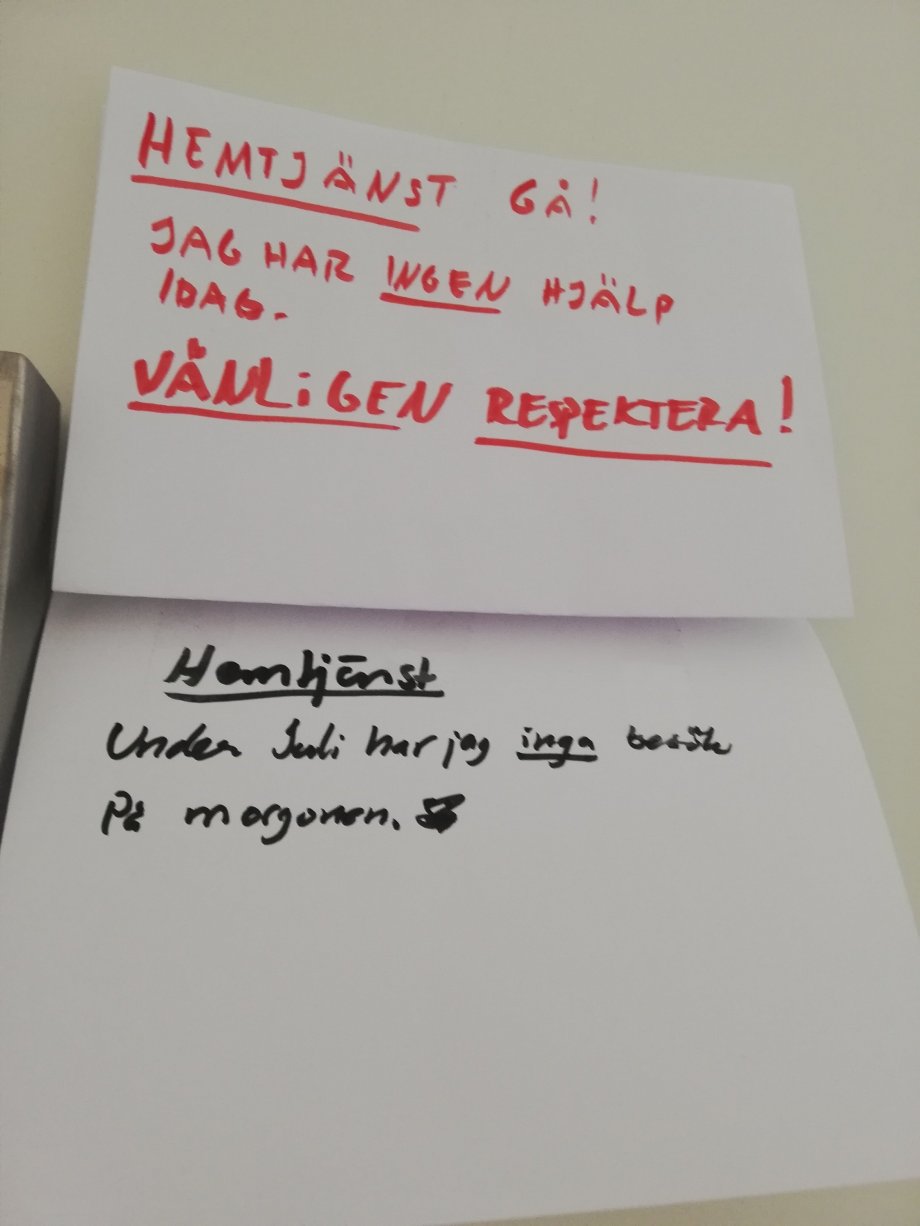 HEMTJÄNST GÅ!
JAG HAR INGEN HJÄLP
IDAG.
VÄNLIGEN RESPEKTERA!
Hemtjänst
Under Juli har jag inga besök
På morgonen.